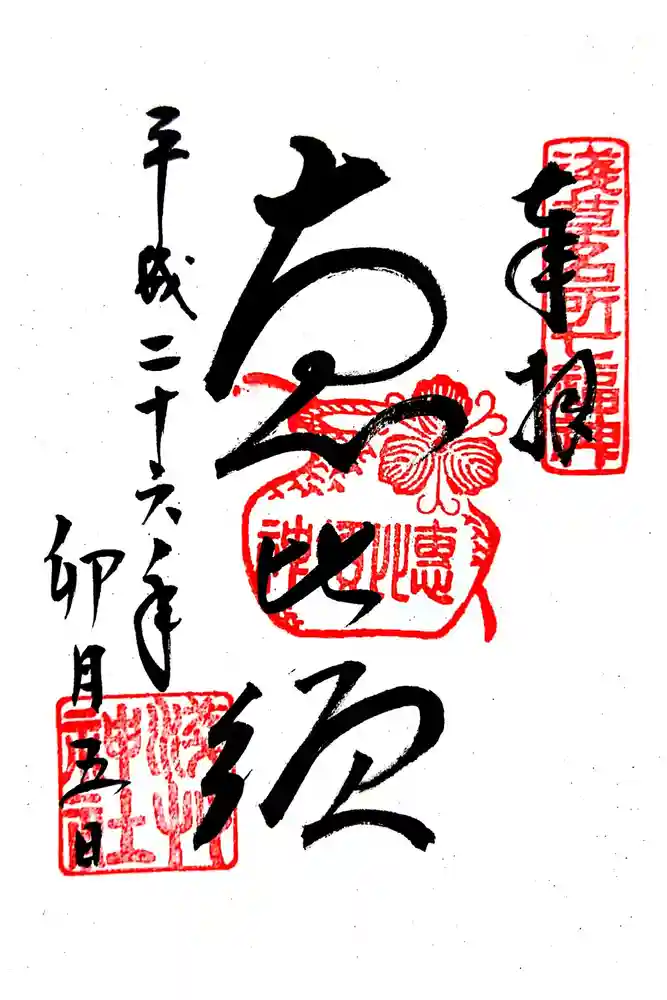 淺草名所七福神
奉拝
恵比須
惠比須神
平成二十六年
卯月五日
淺草神社